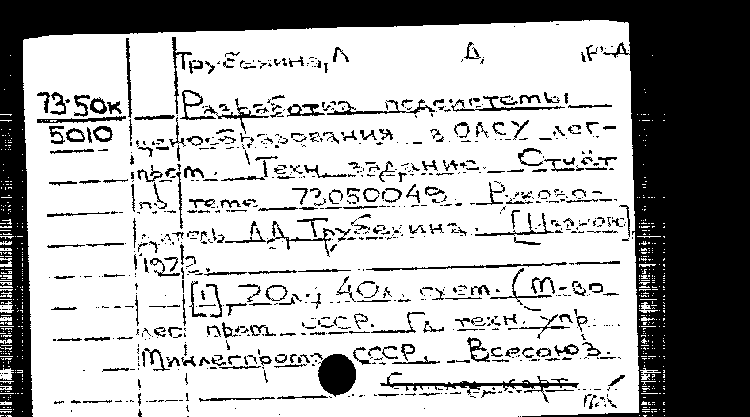 Трубекина, Л Д, ред
73-50к Разработка подсистемы
5010 ценообразования в ОАСУ лег-
пром. Техн. задание. Отчёт
по теме 73050049. Руково-
дитель Л.Д. Трубекина. [Иваново],
1972.
[1], 20л.; 40л. сх. от. (М-во
лег. пром. СССР. Гл. техн. упр.
Минлегпрома СССР. Всесоюз.